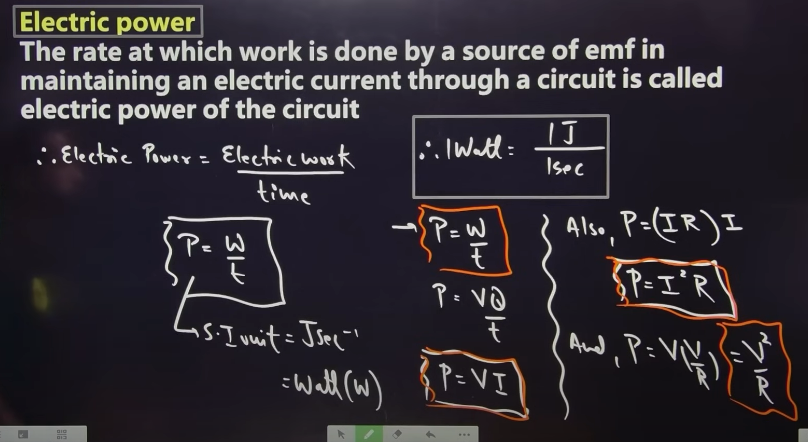 Electric power
The rate at which work is done by a source of emf in
maintaining an electric current through a circuit is called
electric power of the circuit
∴ Electric Power = Electric work / time
∴ 1 Watt = 1J / 1sec
P = W/t
S.I unit = J sec⁻¹
= Watt (W)
→ P = W/t
P = VQ/t
P = VI
Also, P = (IR) I
P = I²R
And, P = V(V/R) = V²/R